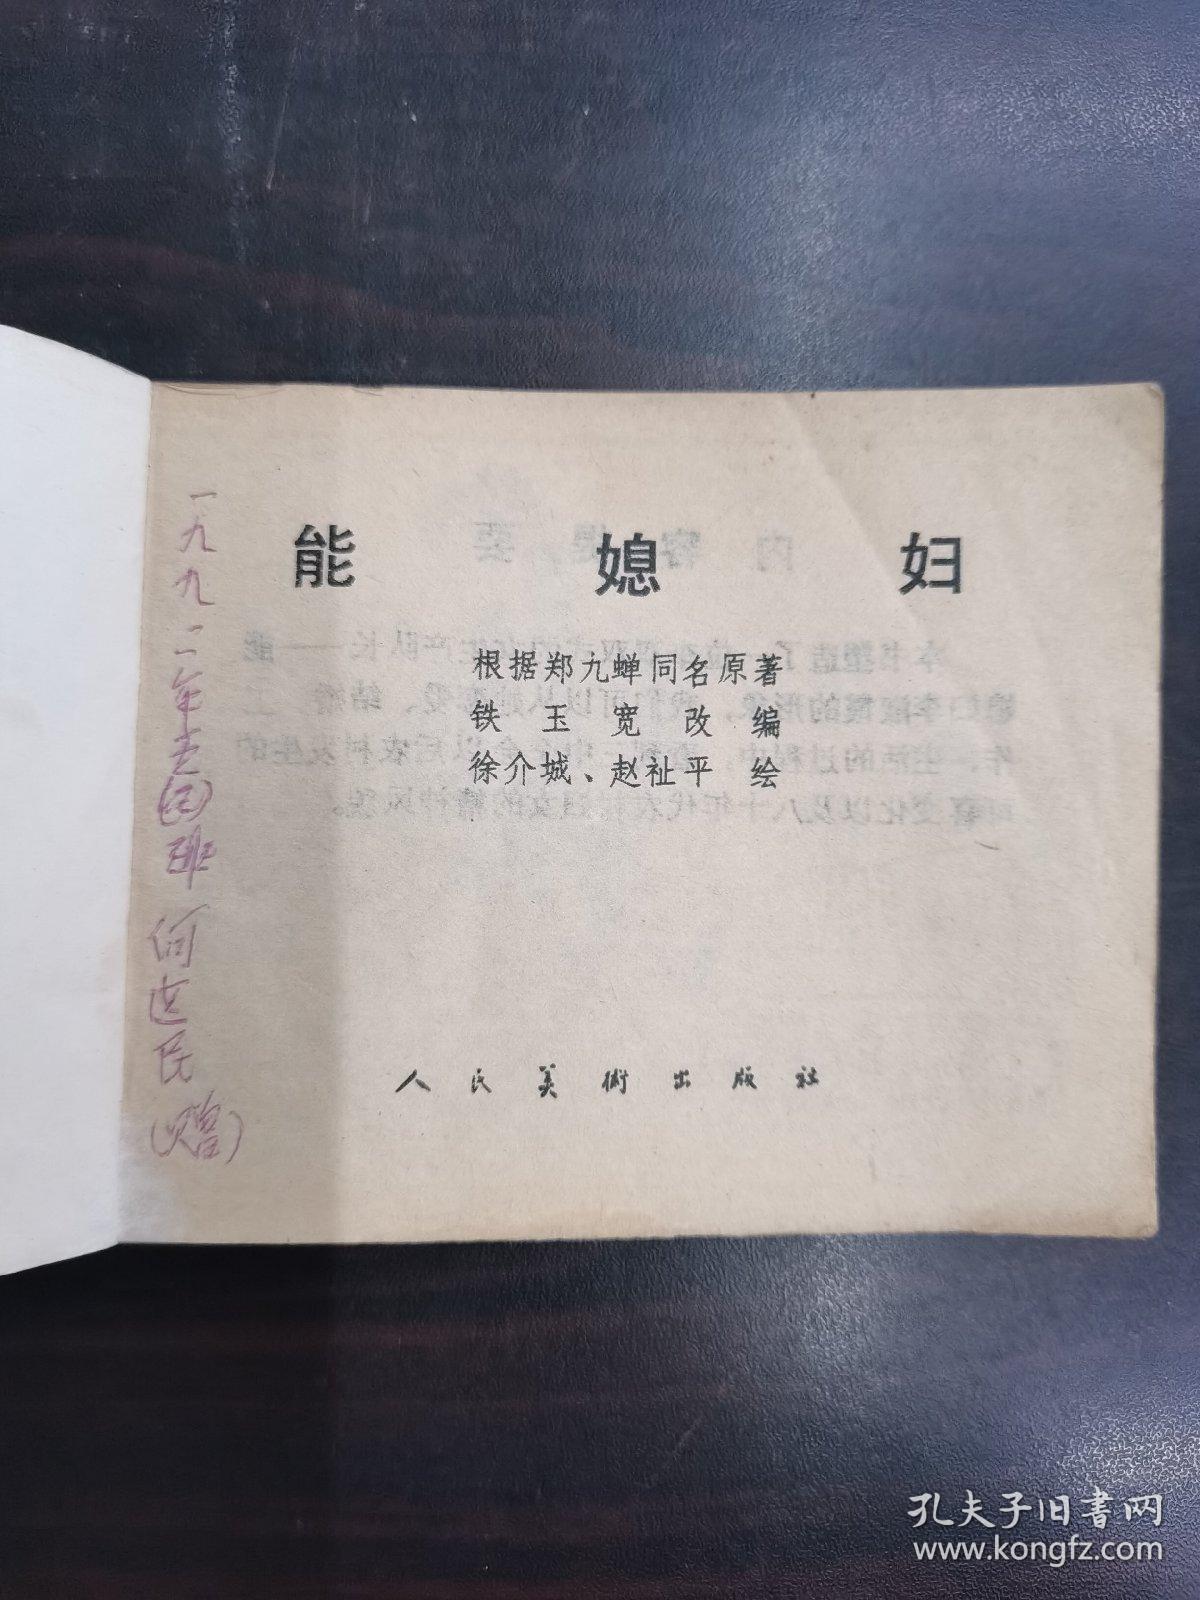 能媳妇
根据郑九蝉同名原著
铁玉宽改编
徐介城、赵祉平 绘
人民美術出版社
一九九二年
班
何世民
(赠)
孔夫子旧书网
www.kongfz.com